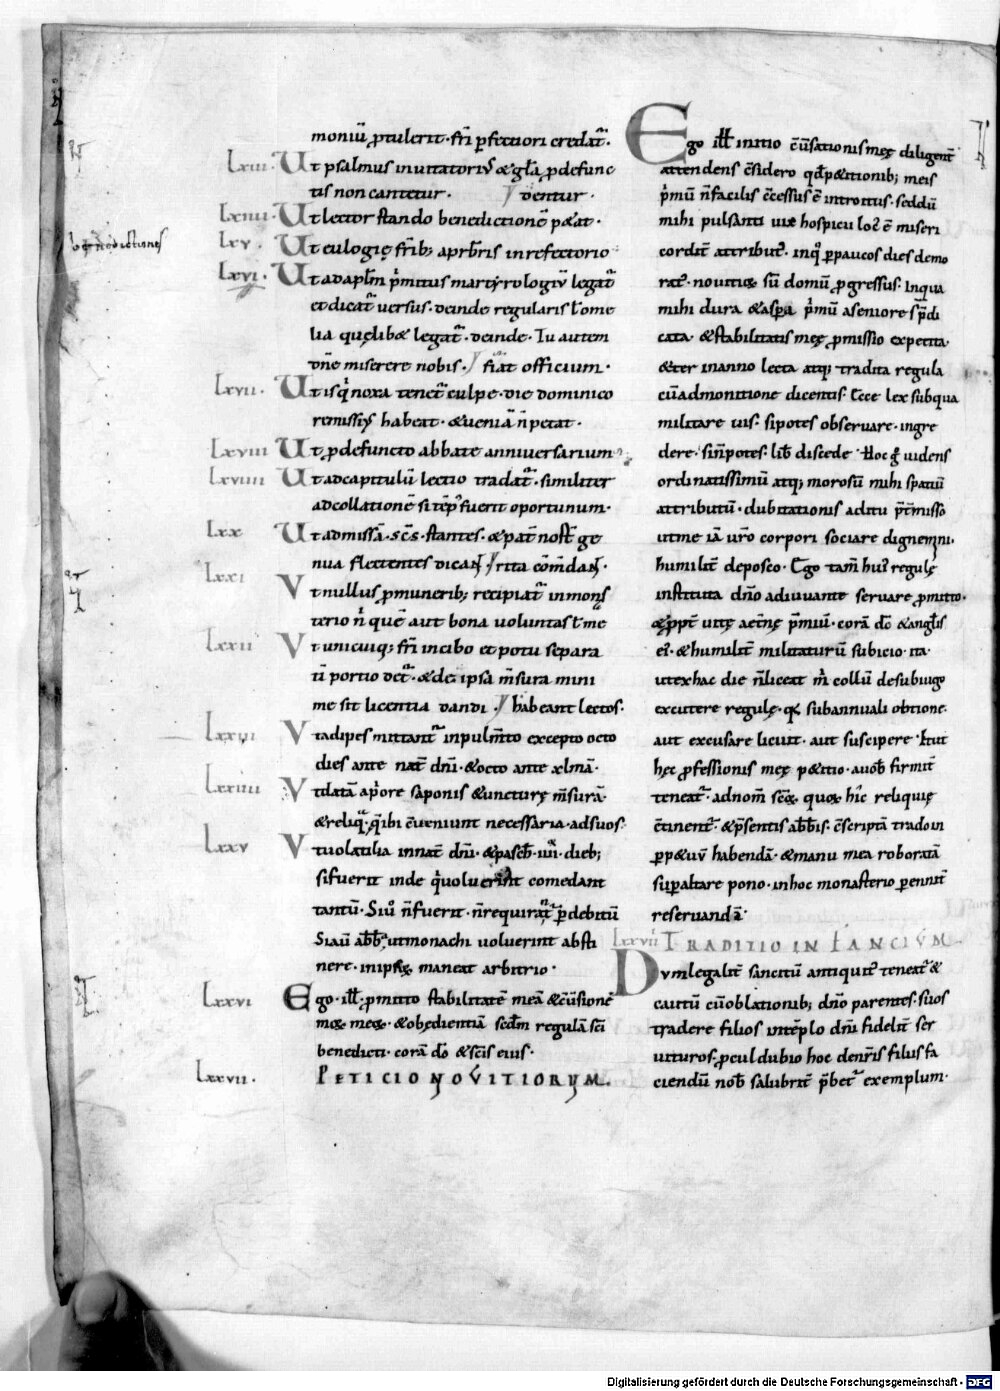 moniū ꝓtulerit · fr̄i ꝑfectiori credat᷑ ·
lxiii · Ut psalmus inuitatoriū & gl̄a ꝓ defunc
tis non cantetur · dentur ·
lxiiii · Ut lector stando benedictionē petat ·
benedictiones
lxv · Ut eulogię frīb; a p̄rbris in refectorio
lxvi · Ut ad ap̄lm p̄mitus martyrologiū legat᷑
et dicat᷑ uersus · deinde regularis l̄ ome
lia quęlib& legat᷑ · deinde · Tu autem
dn̄e miserere nobis · fiat officium ·
lxvii · Ut is q̄ noxa tenet᷑ culpe · die dominico
remissiꝰ habeat · & ueniā n̄ petat ·
lxviii Ut ꝓ defuncto abbate anniuersarium
lxviiii Ut ad capitulū lectio tradat᷑ · similiter
ad collationē si tēpꝰ fuerit oportunum ·
lxx Ut ad missā · sc̄s · stantes · & pat̄ nost̄ ge
nua flectentes dicant
lxxi Vt nullus ꝓ munerib; recipiat᷑ in mones
terio n̄ quē aut bona uoluntas l̄ me
lxxii Vt unicuiq; fr̄i in cibo et potu separa
ti portio det᷑ · & de ipsa m̄sura mini
me sit licentia dandi · habeant lectos ·
lxxiii Vt adipes mittant᷑ in pulm̄to excepto octo
dies ante nat̄ dn̄i · & octo ante xlmā ·
lxxiiii Vt data a p̄ore saponis & uncturę m̄surā ·
& reliq᷑ · q̄ ibi c̄ueniunt necessaria · ad suos
lxxv Vt uolatilia in nat̄ dn̄i · & pasch̄ · iiii · dieb;
si fuerit inde q̄ uoluerint comedant
tantū · Siū n̄ fuerit · n̄ requirat᷑ ꝑ debitū
Si aū abb̄ · ut monachi uoluerint absti
nere · in ipsiꝰ maneat arbitrio ·
lxxvi Ego · ill̄ · ꝓmitto stabilitatē meā & c̄uersionē
moꝝ meoꝝ · & obędientiā scdm̄ regulā sc̄i
benedicti · corā dō & sc̄is eius ·
lxxvii · PETICIO NOVITIORVM ·
Ego ill̄ initio c̄uersationis meę diligent̄
attendens c̄sidero qđ petitionib; meis
p̄mū n̄ facilis c̄cessus ē introitus · sed dū
mihi pulsanti uix hospicii locꝰ ē miseri
cordit̄ attributꝰ · in q̊ ꝑ paucos dies demo
ratꝰ · nouitioꝝ sū domū ꝓgressus · in qua
mihi dura & aspa p̄mū a seniore s̄t p̄di
cata · & stabilitatis meę ꝓmissio expetita ·
& ter in anno lecta atq; tradita regula
cū admonitione dicentis · Ecce lex sub qua
militare uis · si potes obseruare · ingre
dere · sin̄ potes · lib̄ discede · Hoc g̊ uidens
ordinatissimū atq; morosū mihi spatiū
attributū · dubitationis aditu p̄t̄misso
ut me iā ur̄o corpori sociare dignemini ·
humilit̄ deposco · Ego tam̄ huiꝰ regulę
instituta dn̄o adiuuante seruare ꝓmitto ·
& ꝓpt̄ uitę aet̄nę p̄miū · corā dō & angl̄is
eiꝰ · & humilit̄ militaturū subicio · ita
ut ex hac die n̄ liceat m̄ collū de sub iugo
excutere regulę · qđ sub annuali obtione
aut excusare licuit · aut suscipere · Et ut
hęc ꝓfessionis meę petitio · a uob̄ firmit̄
teneat᷑ · ad nom̄ sc̄oꝝ · quoꝝ hic reliquię
c̄tinent᷑ · & p̄sentis abb̄is · c̄scriptā trado in
ꝑp&uū habendā · & manu mea roboratā
suꝑ altare pono · in hoc monasterio ꝑennit̄
reseruandā ·
lxxvii TRADITIO INFANCIVM ·
Dum legalit̄ sancitū antiquitꝰ teneat᷑ &
cautū cū oblationib; dn̄o parentes · suos
tradere filios in tēplo dn̄i fidelit̄ ser
uituros · ꝓcul dubio hoc de nr̄is filiis fa
ciendū nob̄ salubrit̄ p̄bet᷑ exemplum ·
Digitalisierung gefördert durch die Deutsche Forschungsgemeinschaft · DFG